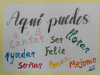 Aquí puedes
Cantar Ser Llorar
Ayudar Feliz
Soñar Reir Mejorar